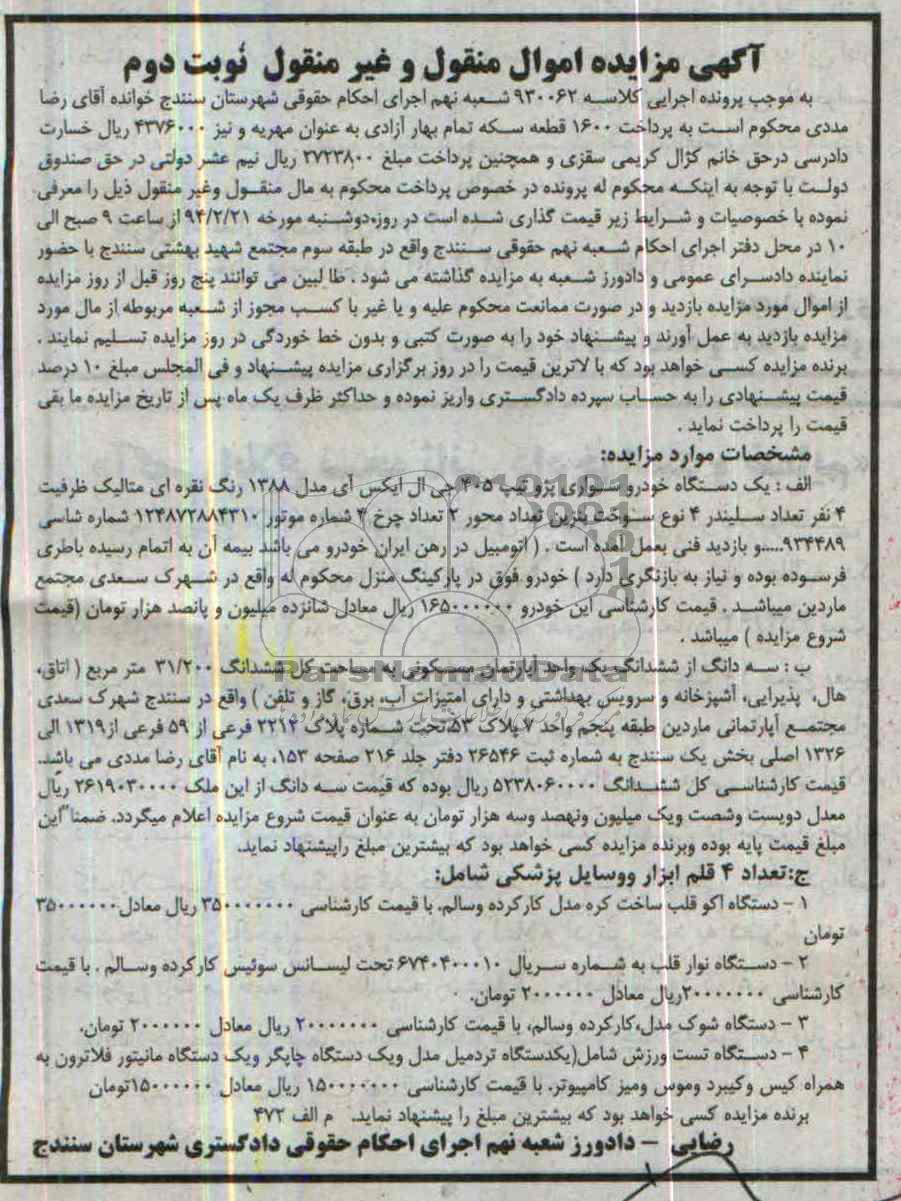 آگهی مزایده اموال منقول و غیر منقول نوبت دوم
به موجب پرونده اجرایی کلاسه ۹۳۰۰۶۲ شعبه نهم اجرای احکام حقوقی شهرستان سنندج خوانده آقای رضا
مددی محکوم است به پرداخت ۱۶۰۰ قطعه سکه تمام بهار آزادی به عنوان مهریه و نیز ۴۳۷۶۰۰۰ ریال خسارت
دادرسی درحق خانم کژال کریمی سقزی و همچنین پرداخت مبلغ ۲۷۲۳۸۰۰ ریال نیم عشر دولتی در حق صندوق
دولت با توجه به اینکه محکوم له پرونده در خصوص پرداخت محکوم به مال منقول وغیر منقول ذیل را معرفی
نموده با خصوصیات و شرایط زیر قیمت گذاری شده است در روز،دوشنبه مورخه ۹۴/۲/۲۱ از ساعت ۹ صبح الی
۱۰ در محل دفتر اجرای احکام شعبه نهم حقوقی سنندج واقع در طبقه سوم مجتمع شهید بهشتی سنندج با حضور
نماینده دادسرای عمومی و دادورز شعبه به مزایده گذاشته می شود . طا لبین می توانند پنج روز قبل از روز مزایده
از اموال مورد مزایده بازدید و در صورت ممانعت محکوم علیه و یا غیر با کسب مجوز از شعبه مربوطه از مال مورد
مزایده بازدید به عمل آورند و پیشنهاد خود را به صورت کتبی و بدون خط خوردگی در روز مزایده تسلیم نمایند .
برنده مزایده کسی خواهد بود که با لاترین قیمت را در روز برگزاری مزایده پیشنهاد و فی المجلس مبلغ ۱۰ درصد
قیمت پیشنهادی را به حساب سپرده دادگستری واریز نموده و حداکثر ظرف یک ماه پس از تاریخ مزایده ما بقی
قیمت را پرداخت نماید .
مشخصات موارد مزایده:
الف : یک دستگاه خودرو سواری پژو تیپ ۴۰۵ جی ال ایکس آی مدل ۱۳۸۸ رنگ نقره ای متالیک ظرفیت
۴ نفر تعداد سلیندر ۴ نوع سوخت بنزین تعداد محور ۲ تعداد چرخ ۴ شماره موتور ۱۲۴۸۷۲۸۸۴۳۱۰ شماره شاسی
۹۳۴۴۸۹.....و بازدید فنی بعمل آمده است . ( اتومبیل در رهن ایران خودرو می باشد بیمه آن به اتمام رسیده باطری
فرسوده بوده و نیاز به بازنگری دارد ) خودرو فوق در پارکینگ منزل محکوم له واقع در شهرک سعدی مجتمع
ماردین میباشد . قیمت کارشناسی این خودرو ۱۶۵۰۰۰۰۰۰ ریال معادل شانزده میلیون و پانصد هزار تومان (قیمت
شروع مزایده ) میباشد .
ب : سه دانگ از ششدانگ یک واحد آپارتمان مسکونی به مساحت کل ششدانگ ۳۱/۲۰۰ متر مربع ( اتاق،
هال، پذیرایی، آشپزخانه و سرویس بهداشتی و دارای امتیزات آب، برق، گاز و تلفن ) واقع در سنندج شهرک سعدی
مجتمع آپارتمانی ماردین طبقه پنجم واحد ۷ پلاک ۵۳،تحت شماره پلاک ۲۲۱۴ فرعی از ۵۹ فرعی از۱۳۱۹ الی
۱۳۲۶ اصلی بخش یک سنندج به شماره ثبت ۲۶۵۴۶ دفتر جلد ۲۱۶ صفحه ۱۵۳، به نام آقای رضا مددی می باشد.
قیمت کارشناسی کل ششدانگ ۵۲۳۸۰۶۰۰۰۰ ریال بوده که قیمت سه دانگ از این ملک ۲۶۱۹۰۳۰۰۰۰ ریال
معدل دویست وشصت ویک میلیون ونهصد وسه هزار تومان به عنوان قیمت شروع مزایده اعلام میگردد. ضمنا"این
مبلغ قیمت پایه بوده وبرنده مزایده کسی خواهد بود که بیشترین مبلغ راپیشنهاد نماید.
ج:تعداد ۴ قلم ابزار ووسایل پزشکی شامل:
۱ - دستگاه اکو قلب ساخت کره مدل کارکرده وسالم. با قیمت کارشناسی ۳۵۰۰۰۰۰۰۰ ریال معادل ۳۵۰۰۰۰۰۰
تومان
۲ - دستگاه نوار قلب به شماره سریال ۶۷۴۰۴۰۰۰۱۰ تحت لیسانس سوئیس کارکرده وسالم . با قیمت
کارشناسی ۲۰۰۰۰۰۰۰ریال معادل ۲۰۰۰۰۰۰ تومان.
۳ - دستگاه شوک مدل،کارکرده وسالم، با قیمت کارشناسی ۲۰۰۰۰۰۰۰ ریال معادل ۲۰۰۰۰۰۰ تومان.
۴ - دستگاه تست ورزش شامل(یکدستگاه تردمیل مدل ویک دستگاه چاپگر ویک دستگاه مانیتور فلاترون به
همراه کیس وکیبرد وموس ومیز کامپیوتر. با قیمت کارشناسی ۱۵۰۰۰۰۰۰۰ ریال معادل ۱۵۰۰۰۰۰۰تومان
برنده مزایده کسی خواهد بود که بیشترین مبلغ را پیشنهاد نماید. م الف ۴۷۲
رضایی - دادورز شعبه نهم اجرای احکام حقوقی دادگستری شهرستان سنندج
ParsNamadData